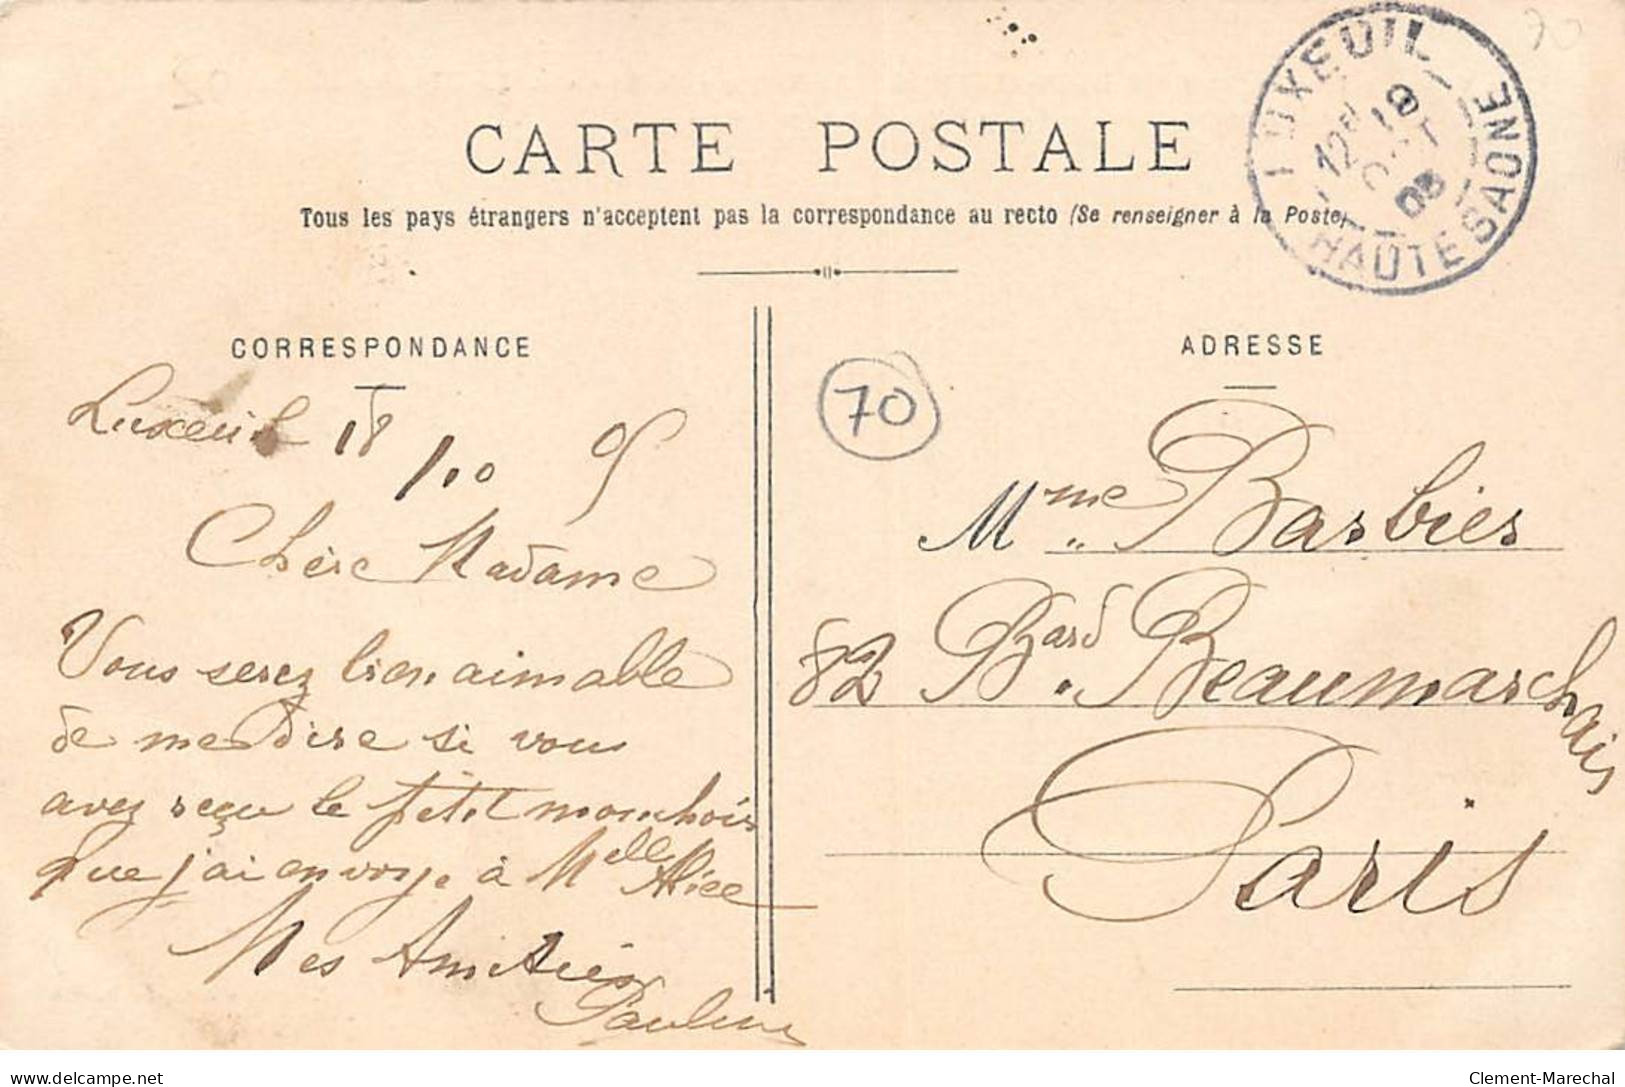 CARTE POSTALE
Tous les pays étrangers n'acceptent pas la correspondance au recto (Se renseigner à la Poste)
LUXEUIL
12 18
OCT
05
HAUTE SAONE
70
CORRESPONDANCE
Luxeuil 18/10 05
Chère Madame
Vous serez bien aimable
de me dire si vous
avez reçu le petit mouchoir
que j'ai envoyé à Melle Alice
Mes Amitiés
Pauline
70
ADRESSE
Mme Barbier
82 Bard Beaumarchais
Paris
delcampe.net
Clement-Marechal